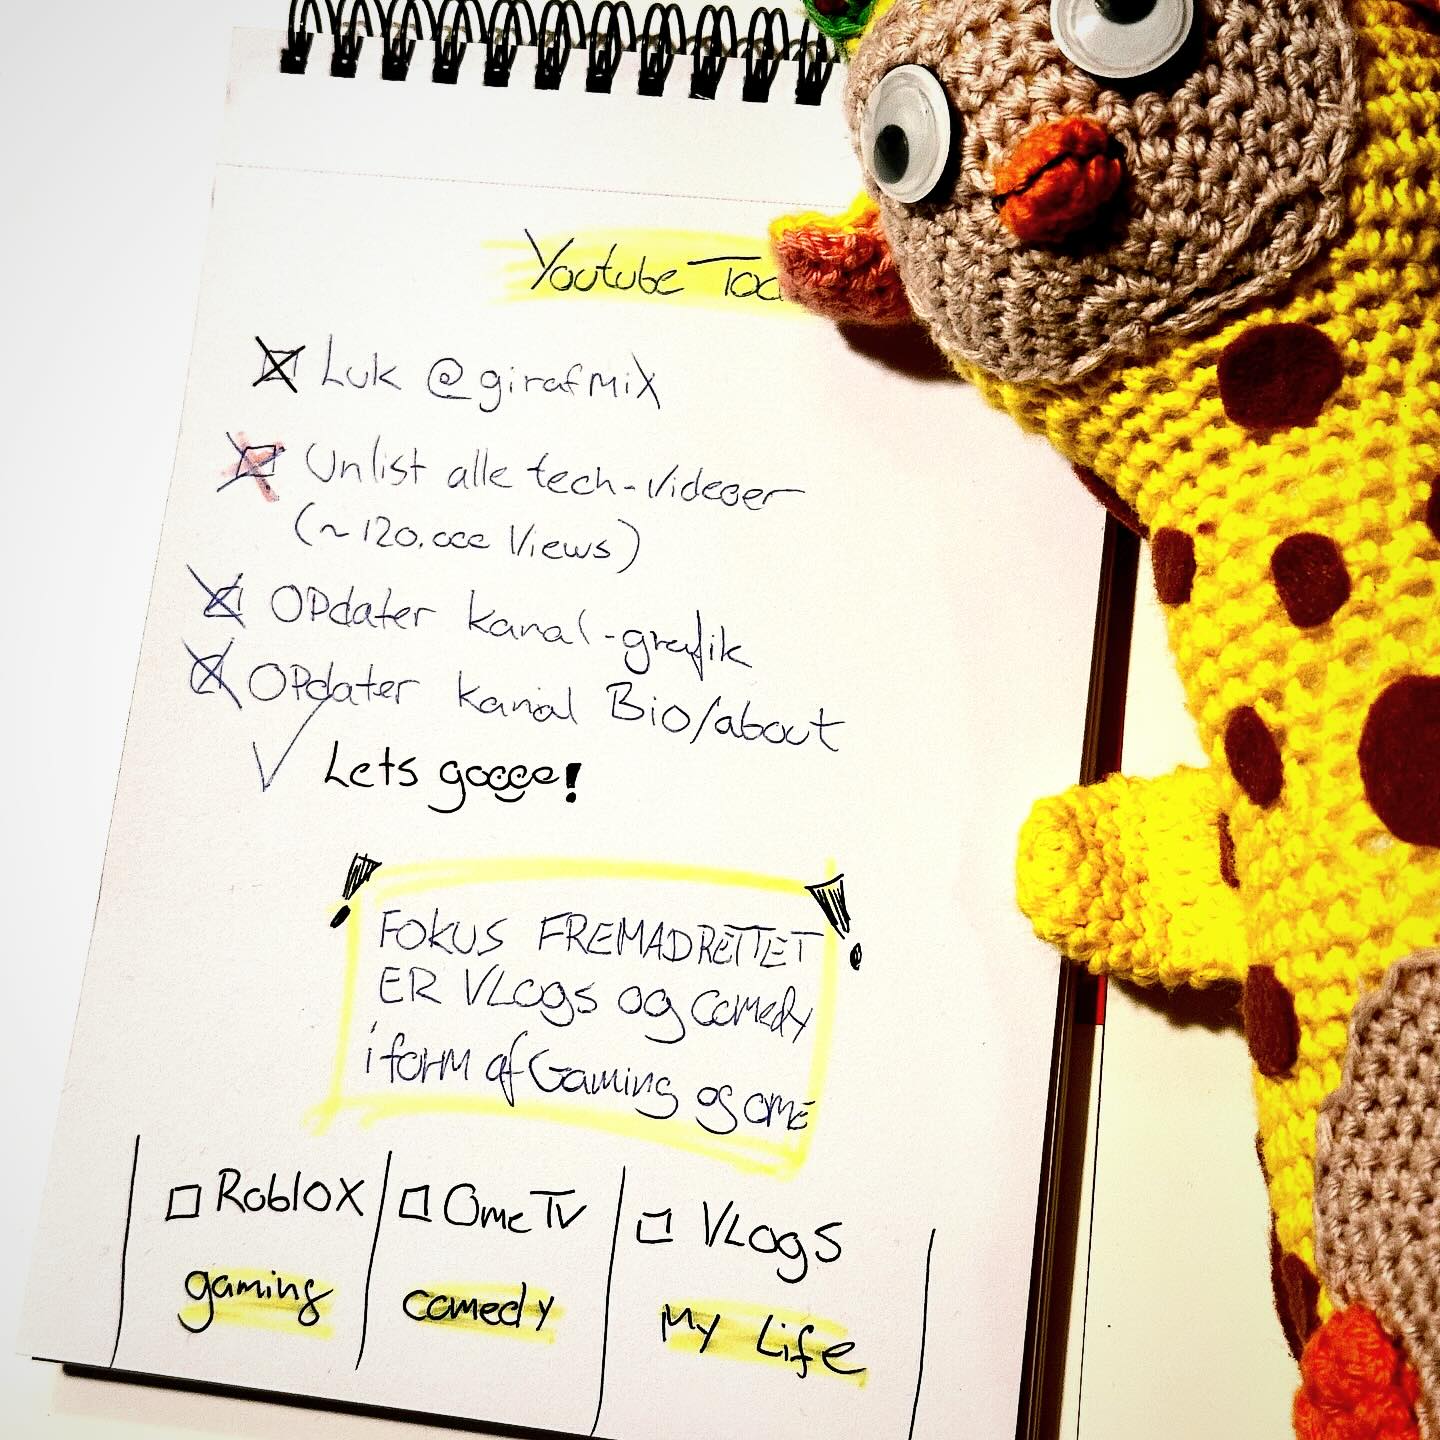 Youtube Tod
Luk @girafmix
Unlist alle tech-videoer
(~120.000 Views)
OPdater kanal-grafik
OPdater kanal Bio/about
Lets goooo!
FOKUS FREMADRETTET
ER VLOGS OG COMEDY
i form af Gaming og OME
Roblox
OmeTv
VLOGS
gaming
comedy
My Life